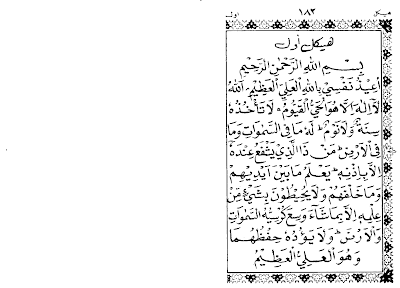 هيكل ١٨٣ اول
هيكل اول
بِسْمِ اللهِ الرَّحْمٰنِ الرَّحِيْمِ
اُعِيْذُ نَفْسِيْ بِاللهِ الْعَلِيِّ الْعَظِيْمِ اَللهُ
لَآ اِلٰهَ اِلَّا هُوَ الْحَيُّ الْقَيُّوْمُ لَا تَأْخُذُهٗ
سِنَةٌ وَّلَا نَوْمٌ لَهٗ مَا فِي السَّمٰوٰتِ وَمَا
فِي الْاَرْضِ مَنْ ذَا الَّذِيْ يَشْفَعُ عِنْدَهٗٓ
اِلَّا بِاِذْنِهٖ يَعْلَمُ مَا بَيْنَ اَيْدِيْهِمْ
وَمَا خَلْفَهُمْ وَلَا يُحِيْطُوْنَ بِشَيْءٍ مِّنْ
عِلْمِهٖٓ اِلَّا بِمَا شَآءَ وَسِعَ كُرْسِيُّهُ السَّمٰوٰتِ
وَالْاَرْضَ وَلَا يَؤُدُهٗ حِفْظُهُمَا
وَهُوَ الْعَلِيُّ الْعَظِيْمُ